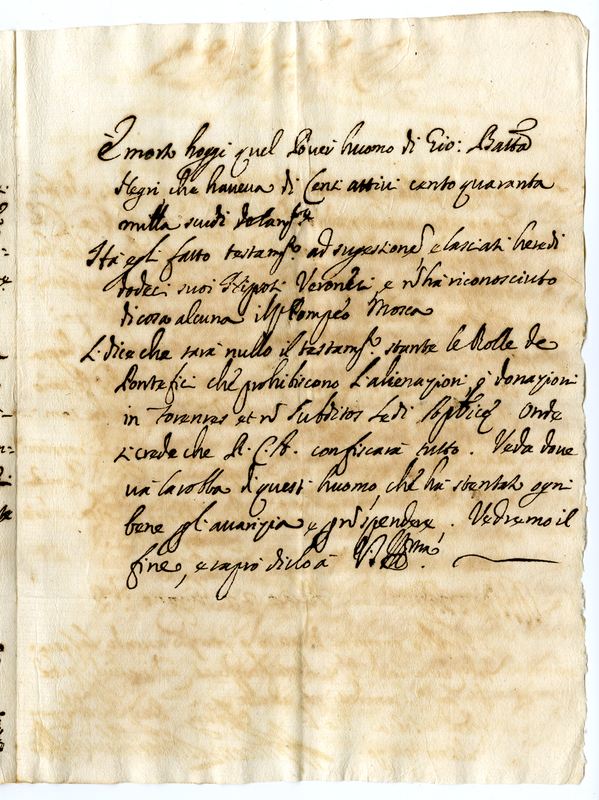 È morto hoggi quel Pover huomo di Gio: Batta
Negri che haveva di Cenci attivi cento quaranta
milla scudi
Ha egli fatto testamto. ad sugestione e lasciati heredi
dodeci suoi Nipoti Veronesi, e nō ha riconosciuto
di cosa alcuna il Sr Pompeo Mosca
Si dice che sarà nullo il testamto. stante le Bolle de
Pontefici che prohibiscono l'alienazioni ò donazioni
in Forenses et nō subditos Sedi Onde
si crede che R. C. A. confiscarà tutto. Veda dove
và la robba di questi huomo, che hà stentato ogni
bene p l'avarizia e p nō spendere. Vedremo il
fine, e saprò dirlo à V. S. Illma.